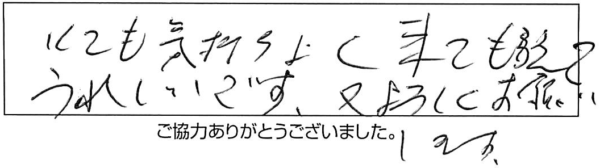 とても気持ちよく来ても話して
うれしいです、又よろしくお願い
します。
ご協力ありがとうございました。